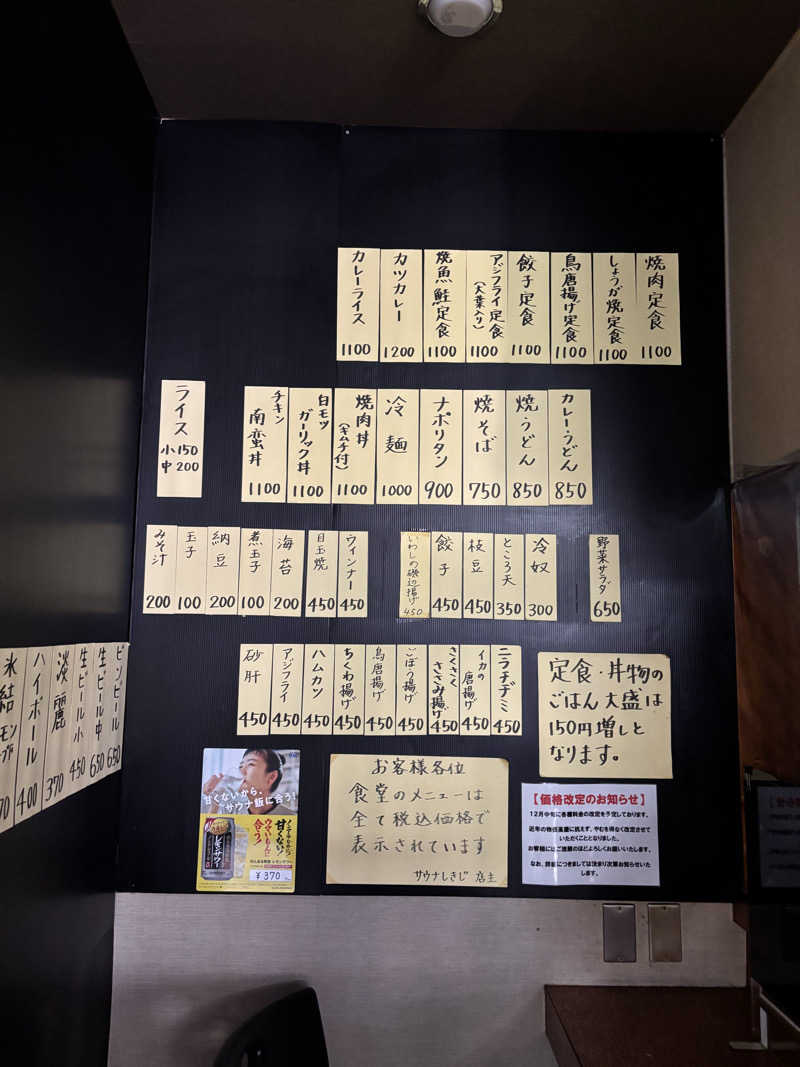 焼肉定食
1100
しょうが焼定食
1100
鳥唐揚げ定食
1100
餃子定食
1100
アジフライ定食
(大葉入り)
1100
焼魚鮭定食
1100
カツカレー
1200
カレーライス
1100
カレーうどん
850
焼うどん
850
焼そば
750
ナポリタン
900
冷麺
1000
焼肉丼
(キムチ付)
1100
白モツ
ガーリック丼
1100
チキン
南蛮丼
1100
ライス
小150
中200
野菜サラダ
650
冷奴
300
ところ天
350
枝豆
450
餃子
450
いわしの磯辺揚げ
450
ウィンナー
450
目玉焼
450
海苔
200
煮玉子
100
納豆
200
玉子
100
みそ汁
200
ニラチヂミ
450
イカの
唐揚げ
450
さくさく
ささみ揚げ
450
ごぼう揚げ
450
鳥唐揚げ
450
ちくわ揚げ
450
ハムカツ
450
アジフライ
450
砂肝
450
ビンビール
650
生ビール中
650
生ビール小
450
淡麗
370
ハイボール
400
氷結
定食・丼物の
ごはん大盛は
150円増しと
なります。
お客様各位
食堂のメニューは
全て税込価格で
表示されています
サウナしきじ 店主
【価格改定のお知らせ】
12月中旬に各種料金の改定を予定しております。
近年の物価高騰に抗えず、やむを得なく改定させて
いただくこととなりました。
お客様にはご迷惑のほどよろしくお願いいたします。
なお、詳細につきましては決まり次第お知らせいた
します。
甘くないから、
サウナ飯に合う!
甘くない!
ウマいもんに
合う!
レモンサワー
¥370